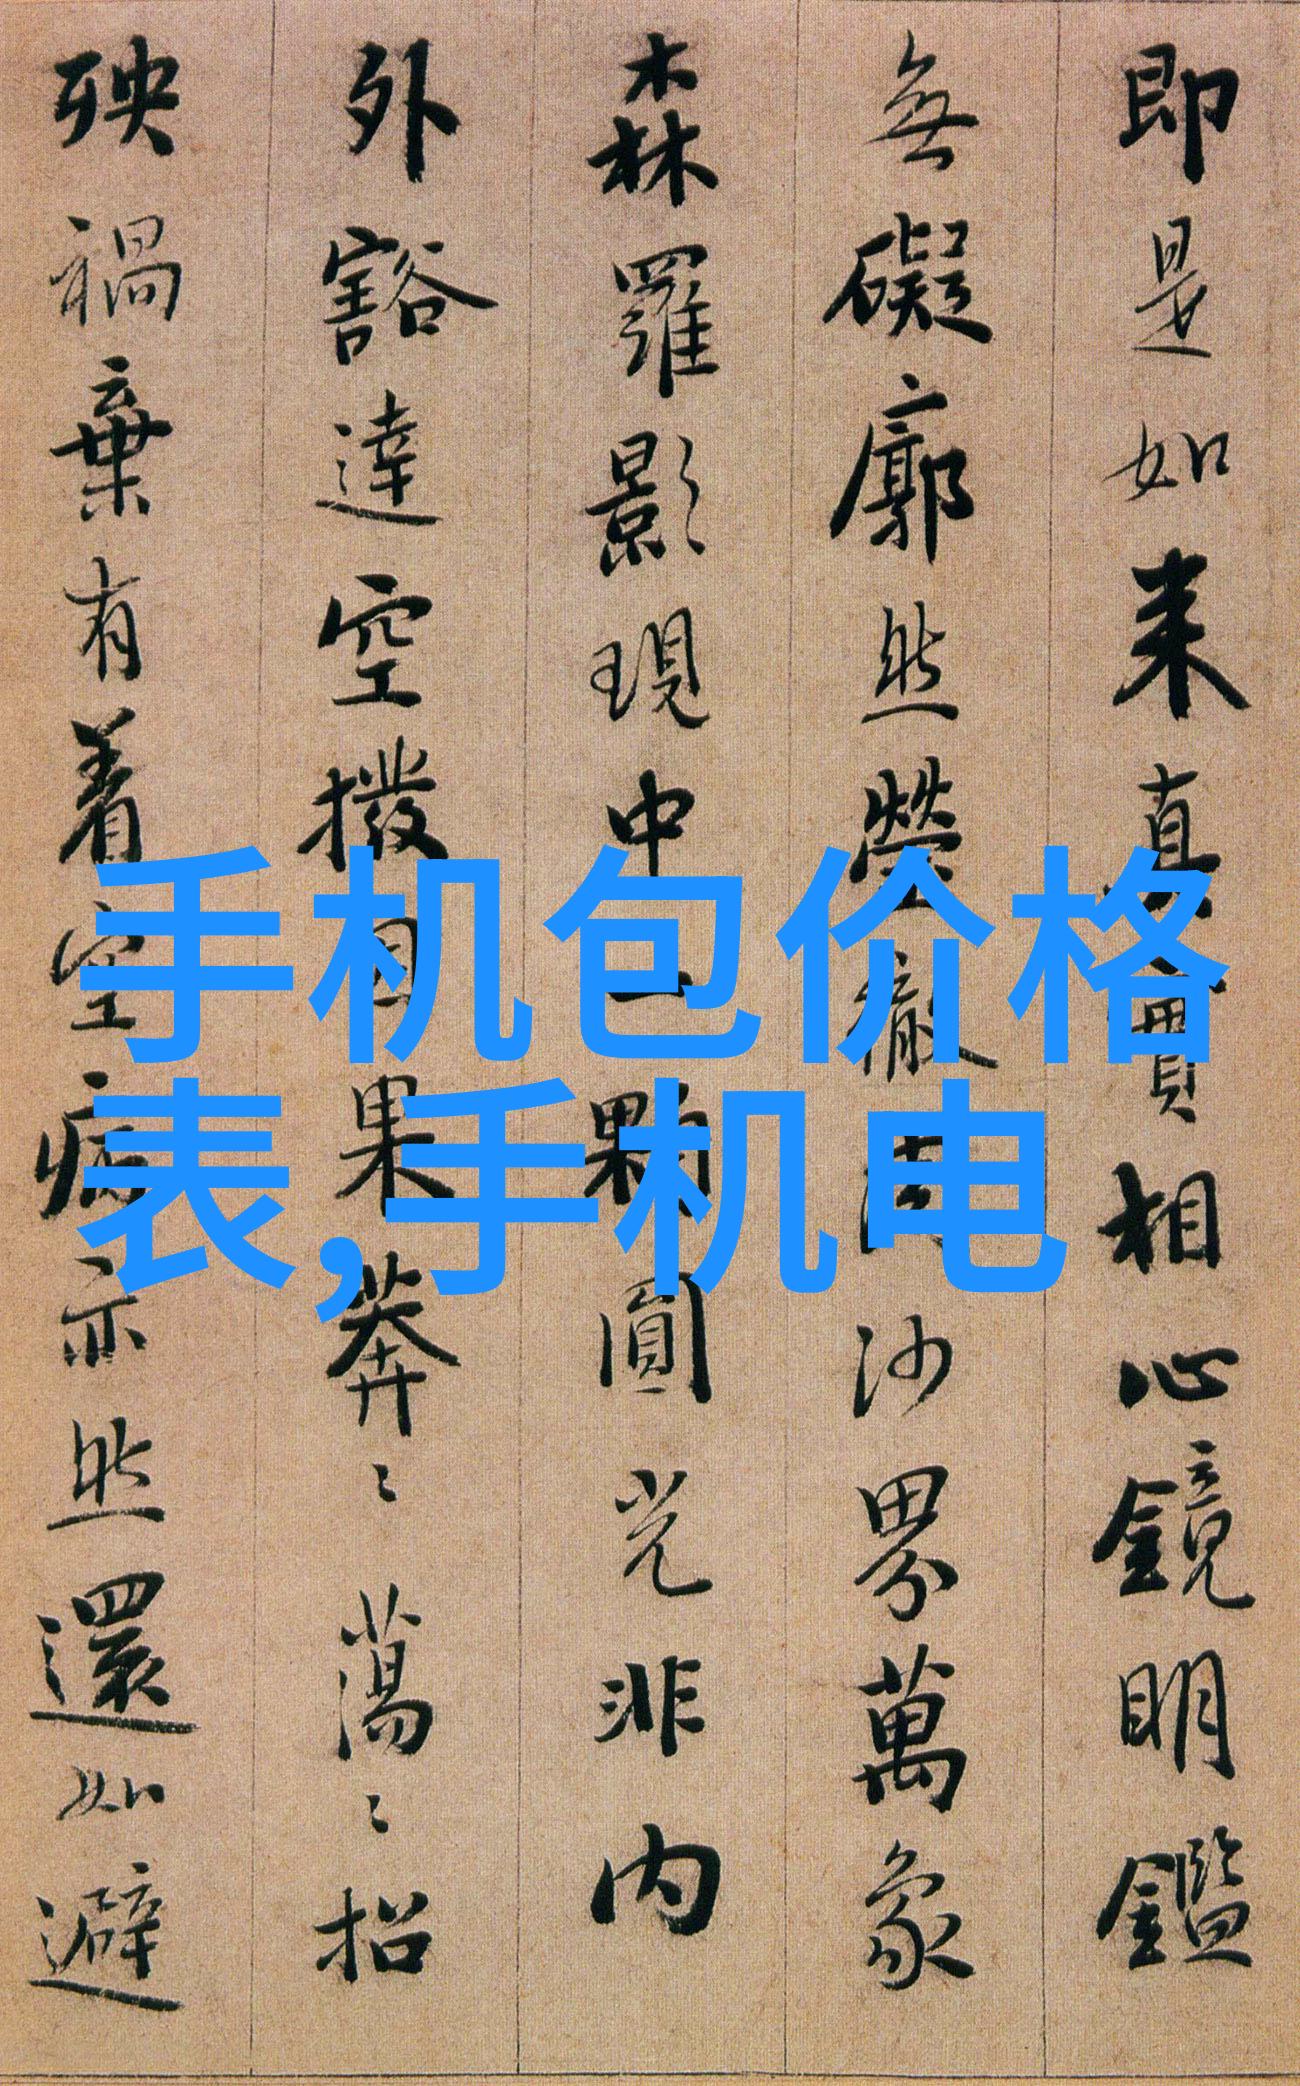 即是如来真實相心鏡明鑑
無礙廓然瑩徹周沙界萬象
森羅影現中一顆圓光非内
外豁達空撥因果莽〻蕩〻招
殃禍棄有着空病亦然還如避
手机包价格
表,手机电